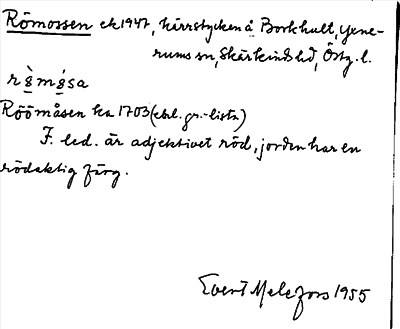 Römossen ek 1947, kärrstycken å Borkhult, Yxne-
rums sn, Skärkinds hd, Östg. l.
rö̀mó̱sa
Röömåsen ha 1703 (ebl. gr.-lista)
F. led. är adjektivet röd, jorden har en
rödaktig färg.
Evert Melefors 1955